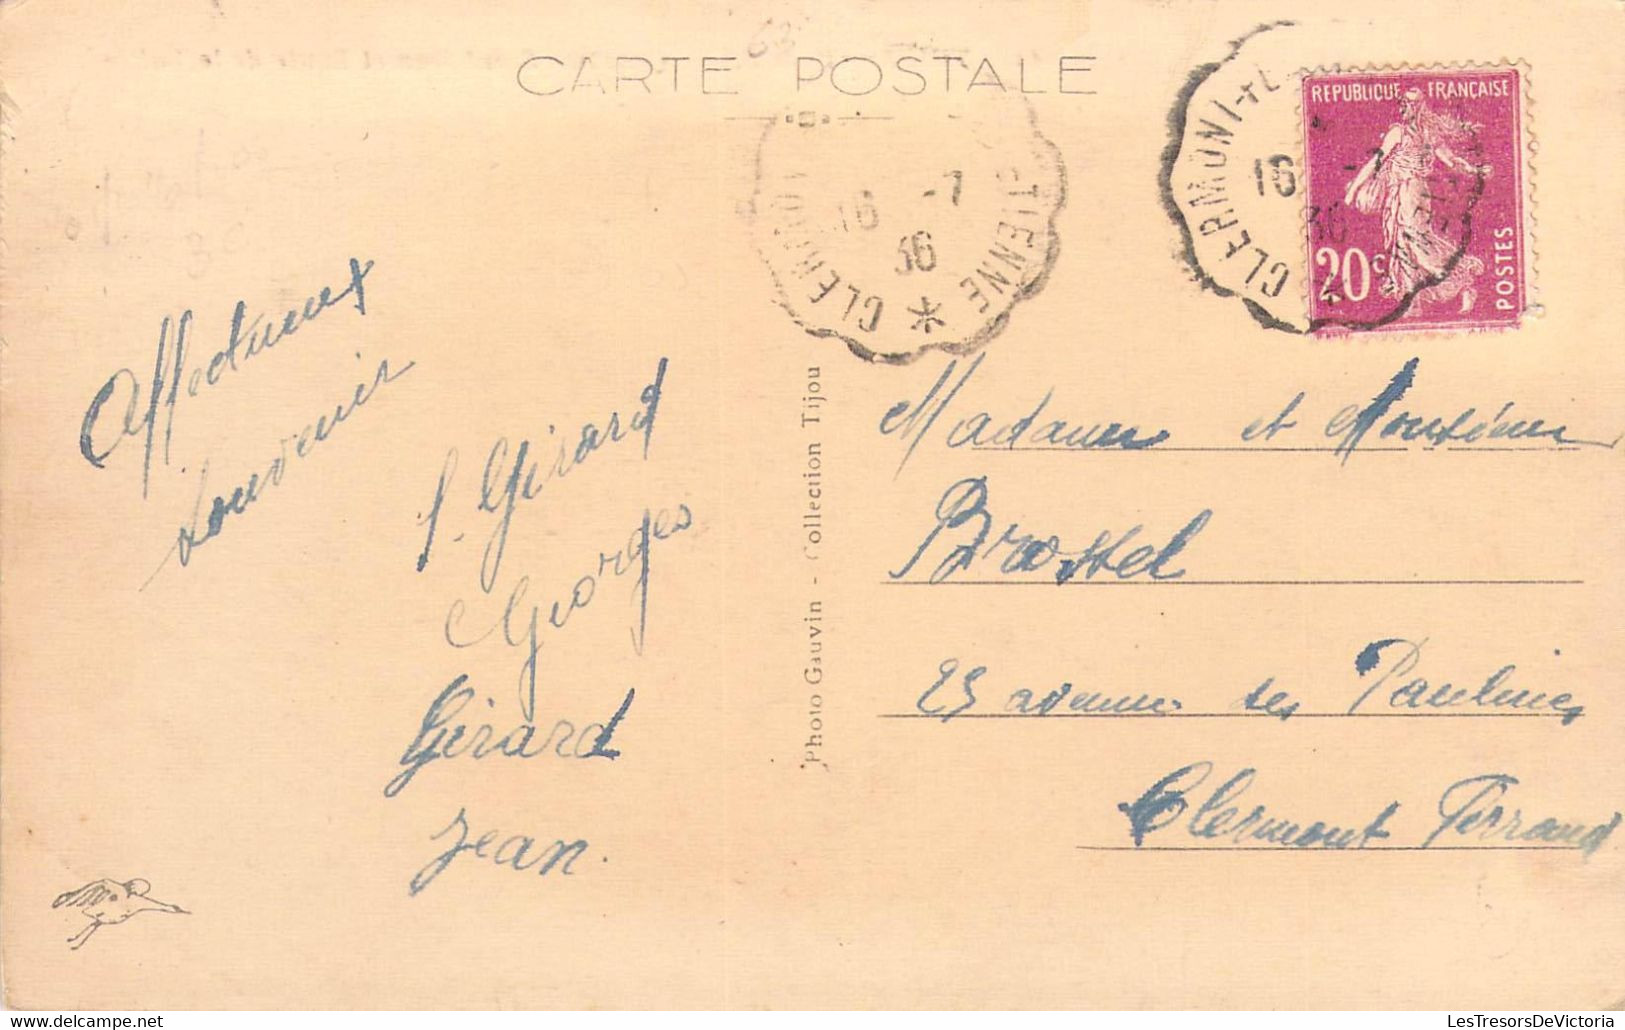 CARTE POSTALE
CLERMONT
16 -7
36
TIENNE
CLERMONT
16 -7
36
REPUBLIQUE FRANÇAISE
20c
POSTES
Affectueux
souvenir
Girard
Georges
Girard
Jean.
Photo Gauvin - Collection Tijou
Madame et Monsieur
Brossel
25 avenue des Paulines
Clermont Ferrand
LesTresorsDeVictoria